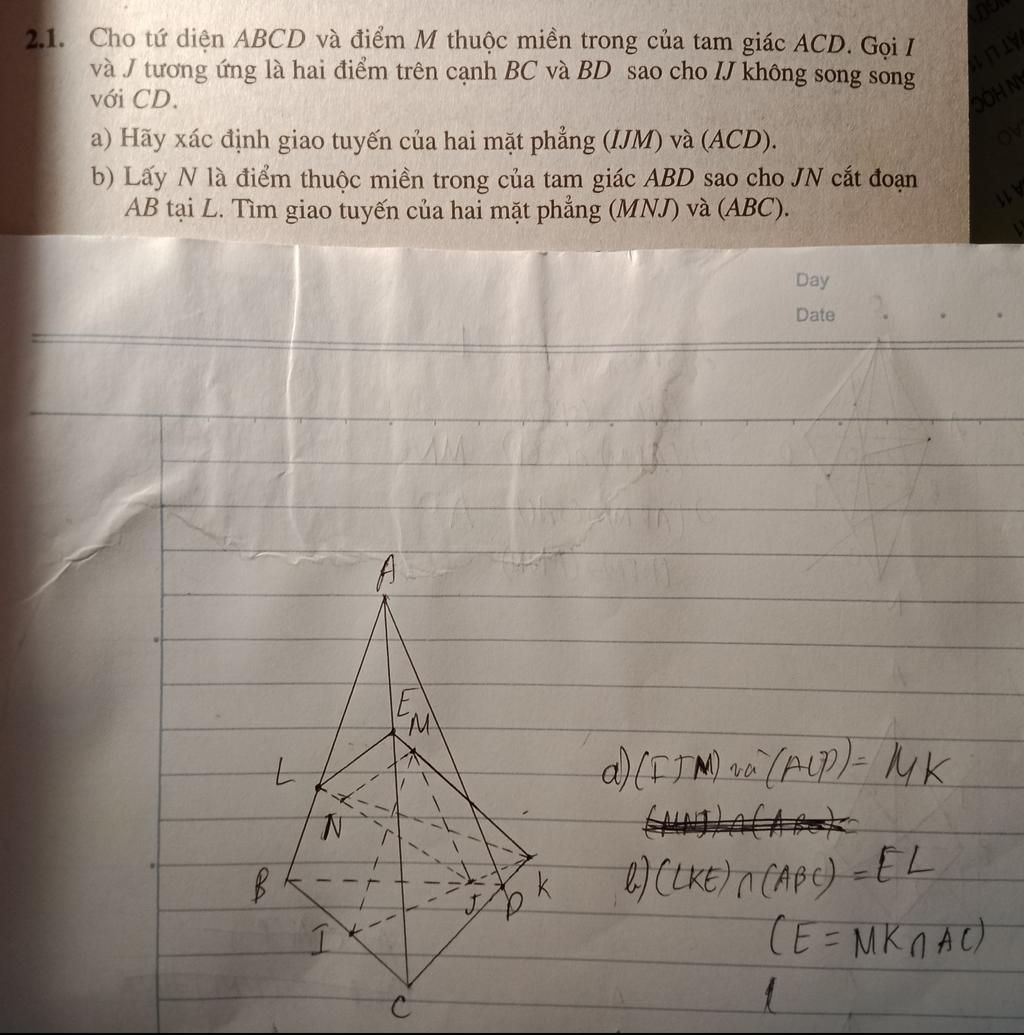 2.1. Cho tứ diện ABCD và điểm M thuộc miền trong của tam giác ACD. Gọi I
và J tương ứng là hai điểm trên cạnh BC và BD sao cho IJ không song song
với CD.
a) Hãy xác định giao tuyến của hai mặt phẳng (IJM) và (ACD).
b) Lấy N là điểm thuộc miền trong của tam giác ABD sao cho JN cắt đoạn
AB tại L. Tìm giao tuyến của hai mặt phẳng (MNJ) và (ABC).
Day
Date
A
E
M
L
N
B
J
D
K
I
C
a) (IJM) và (ACD) = MK
b) (LKE) ∩ (ABC) = EL
(E = MK ∩ AC)